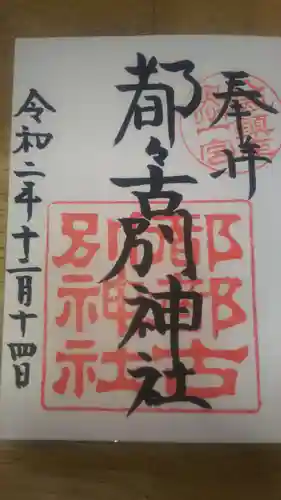 奉拝
都々古別神社
令和二年十二月十四日
都都古
別神社